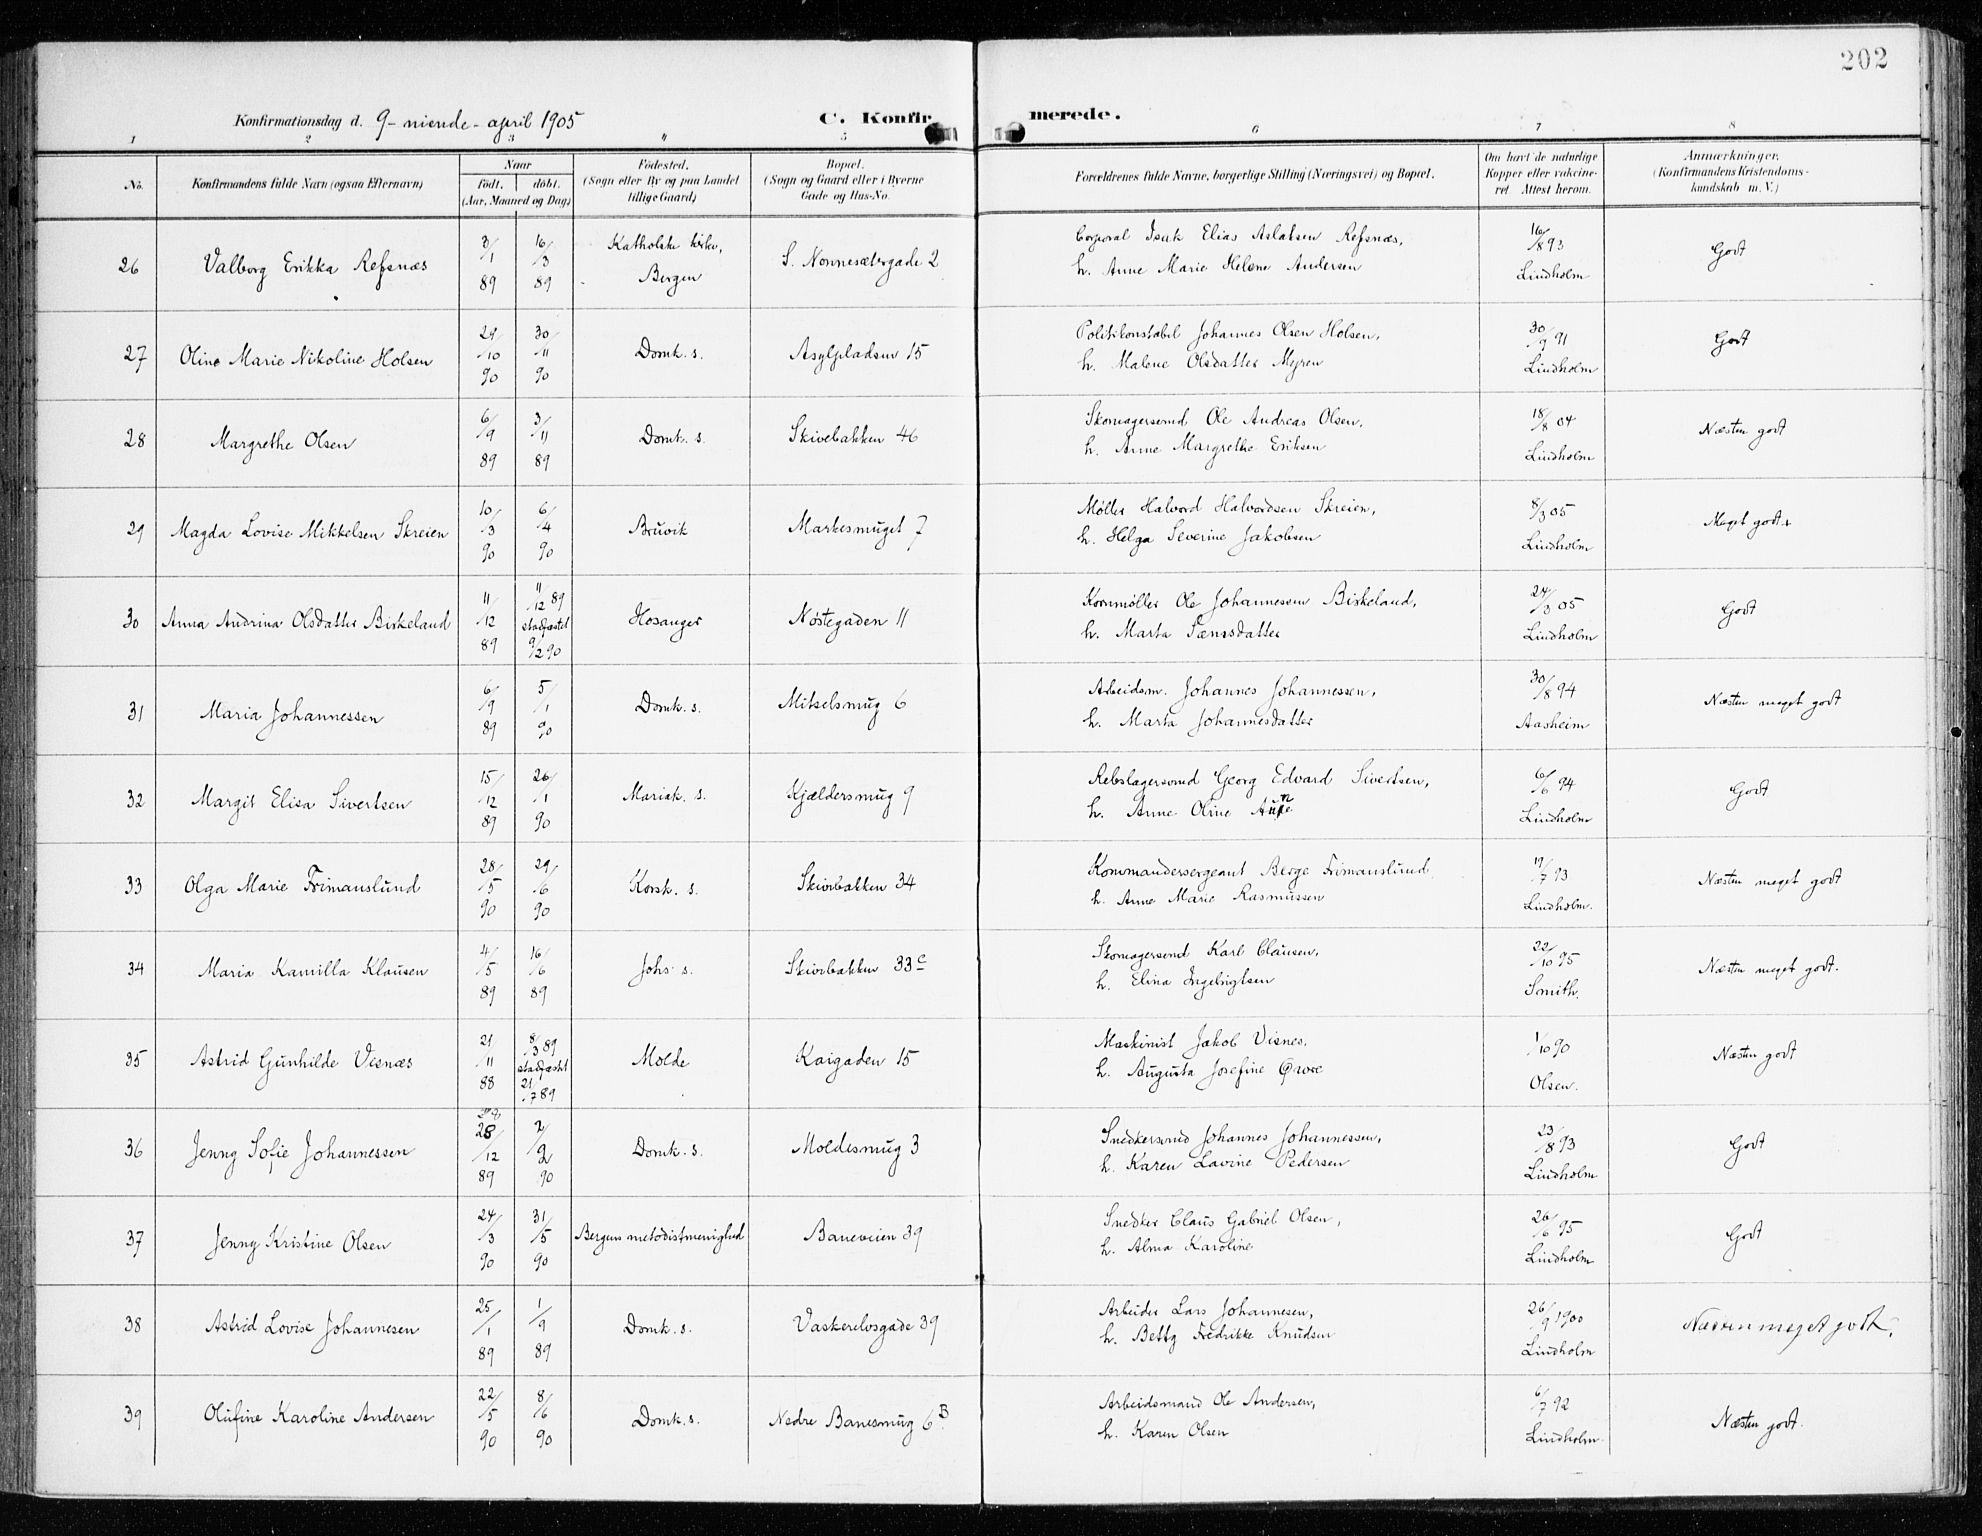 202
Konfirmationsdag d. 9 - niende - april 1905
C. Konfirmerede.
1 2 3 4 5 6 7 8
No.
Konfirmandens fulde Navn (ogsaa Efternavn)
Naar
født. døbt.
(Aar, Maaned og Dag)
Fødested.
(Sogn eller By og paa Landet
tillige Gaard)
Bopæl.
(Sogn og Gaard eller i Byerne
Gade og Hus-No.
Forældrenes fulde Navne, borgerlige Stilling (Næringsvei) og Bopæl.
Om havt de naturlige
Kopper eller vakcine-
ret. Attest herom.
Anmærkninger.
(Konfirmandens Kristendoms-
kundskab m. V.)
26 Valborg Erikka Refsnæs 3/1 89 16/3 89 Katholske kirke, Bergen S. Nonnesætergade 2
Corporal Isak Elias Aslaksen Refsnæs, 16/8 93 Godt
h. Anne Marie Helene Andersen Lindholm
27 Oline Marie Nikoline Holsen 29/10 90 30/11 90 Domk. s. Asylpladsen 15
Politikonstabel Johannes Olsen Holsen, 30/9 91 Godt
h. Malene Olsdatter Myren Lindholm
28 Margrethe Olsen 6/9 89 3/11 89 Domk. s. Skivebakken 46
Skomagersvend Ole Andreas Olsen, 18/8 04 Næsten godt
h. Anne Margrethe Eriksen Lindholm
29 Magda Lovise Mikkelsen Skreien 10/3 90 6/4 90 Bruvik Markesmuget 7
Møller Halvord Halvordsen Skreien, 8/3 05 Meget godt
h. Helga Severine Jakobsen Lindholm
30 Anna Andrina Olsdatter Birkeland 11/12 89 11/12 89 stadfæstet 9/2 90 Hosanger Nøstegaden 11
Kornmøller Ole Johannessen Birkeland, 24/3 05 Godt
h. Marta Sænesdatter Lindholm
31 Maria Johannessen 6/9 89 5/1 90 Domk. s. Mitselsmug 6
Arbeidsm. Johannes Johannessen, 30/8 94 Næsten meget godt
h. Marta Johannesdatter Aasheim
32 Margit Elisa Sivertsen 15/12 89 26/1 90 Mariak. s. Kjældersmug 9
Rebslagersvend Georg Edvard Sivertsen, 6/6 94 Godt
h. Anne Oline Aune Lindholm
33 Olga Marie Frimanslund 28/5 90 29/6 90 Korsk. s. Skivebakken 34
Kommandersergeant Berge Frimanslund 19/7 93 Næsten meget godt
h. Anne Marie Rasmussen Lindholm.
34 Maria Kamilla Klausen 4/5 89 16/6 89 Johs. s. Skivebakken 33c
Skomagersvend Karl Clausen, 22/10 95 Næsten meget godt.
h. Elina Ingebrigtsen Smith.
35 Astrid Gunhilde Visnæs 21/11 88 8/3 89 stadfæstet 21/7 89 Molde Kaigaden 15
Maskinist Jakob Visnes, 1/10 90 Næsten godt
h. Augusta Josefine Qvore Olsen.
36 Jenny Sofie Johannessen 28/12 89 2/2 90 Domk. s. Moldesmug 3
Snedkersvend Johannes Johannessen, 23/8 93 Godt
h. Karen Lavine Pedersen Lindholm
37 Jenny Kristine Olsen 24/3 90 31/5 90 Bergens metodistmenighed Baneveien 39
Snedker Claus Gabriel Olsen, 26/6 95 Godt
h. Alma Karoline Lindholm
38 Astrid Lovise Johannesen 25/1 89 1/9 89 Domk. s. Vaskerelvsgade 39
Arbeider Lars Johannesen, 26/9 1900 Næsten meget godt.
h. Betty Fredrikke Knudsen Lindholm
39 Olufine Karoline Andersen 22/5 90 8/6 90 Domk. s. Nedre Banesmug 6B
Arbeidsmand Ole Andersen, 6/7 92 Næsten godt.
h. Karen Olsen Lindholm.